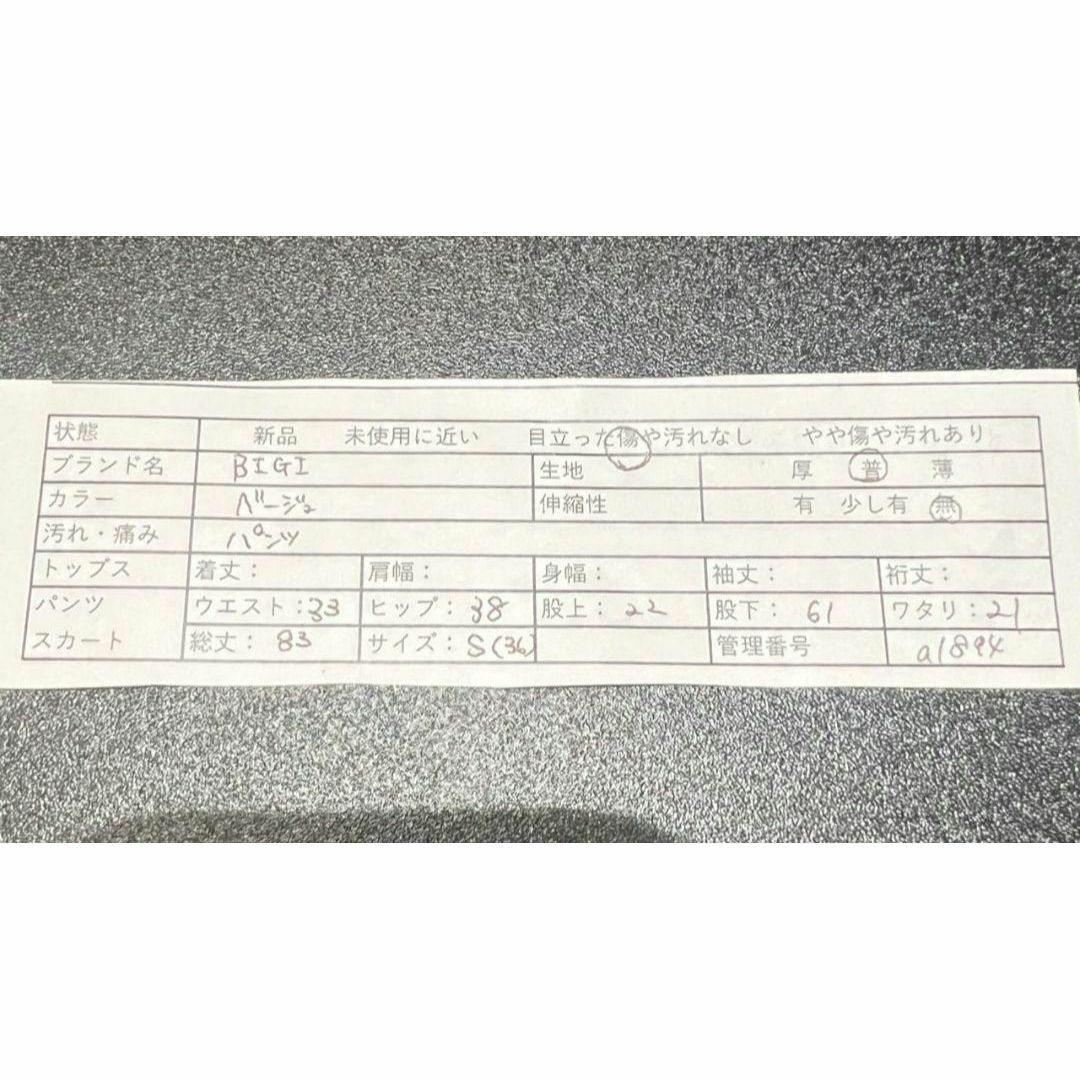 状態 新品 未使用に近い 目立った傷や汚れなし やや傷や汚れあり
ブランド名 BIGI 生地 厚 普 薄
カラー ベージュ 伸縮性 有 少し有 無
汚れ・痛み パンツ
トップス 着丈： 肩幅： 身幅： 袖丈： 裄丈：
パンツ ウエスト：33 ヒップ：38 股上：22 股下：61 ワタリ：21
スカート 総丈：83 サイズ：S(36) 管理番号 a1894